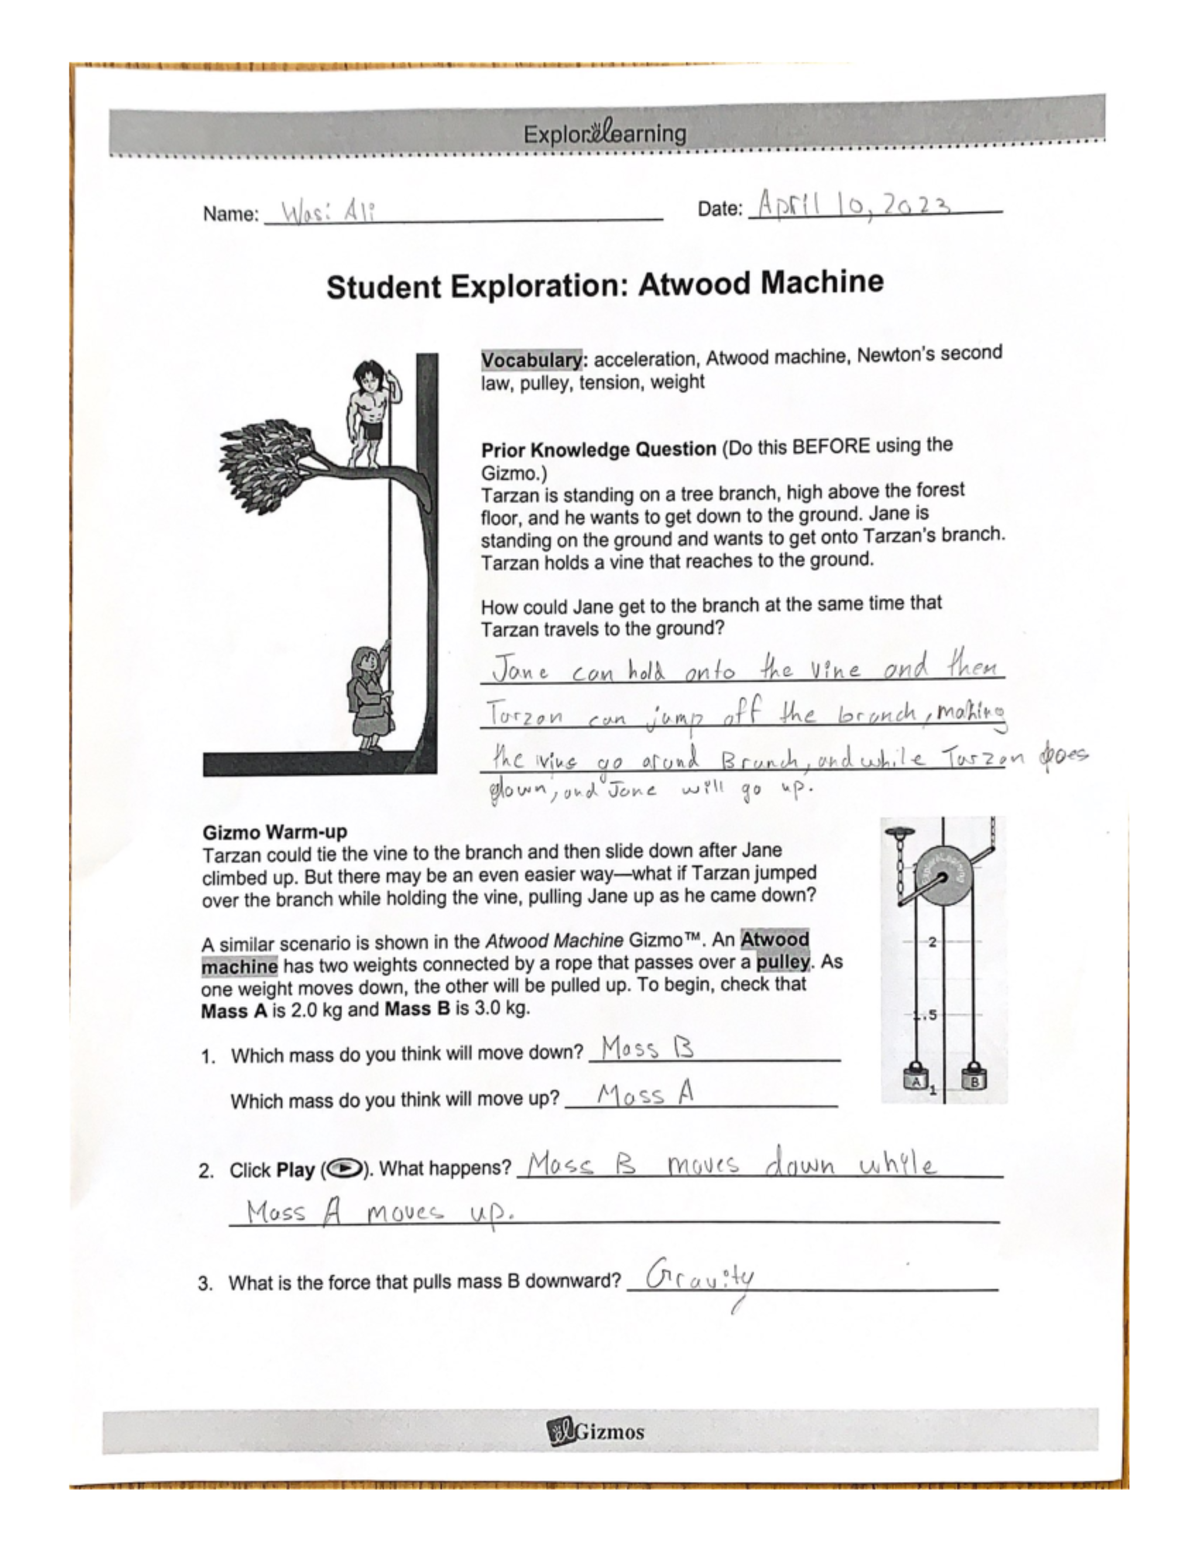 ExploreLearning
Name: Wasi Ali Date: April 10, 2023
Student Exploration: Atwood Machine
Vocabulary: acceleration, Atwood machine, Newton's second
law, pulley, tension, weight
Prior Knowledge Question (Do this BEFORE using the
Gizmo.)
Tarzan is standing on a tree branch, high above the forest
floor, and he wants to get down to the ground. Jane is
standing on the ground and wants to get onto Tarzan's branch.
Tarzan holds a vine that reaches to the ground.
How could Jane get to the branch at the same time that
Tarzan travels to the ground?
Jane can hold onto the vine and then
Tarzan can jump off the branch, making
the vine go around Branch, and while Tarzan goes
down, and Jane will go up.
Gizmo Warm-up
Tarzan could tie the vine to the branch and then slide down after Jane
climbed up. But there may be an even easier way—what if Tarzan jumped
over the branch while holding the vine, pulling Jane up as he came down?
A similar scenario is shown in the Atwood Machine Gizmo™. An Atwood
machine has two weights connected by a rope that passes over a pulley. As
one weight moves down, the other will be pulled up. To begin, check that
Mass A is 2.0 kg and Mass B is 3.0 kg.
2
1.5
A 1 B
1. Which mass do you think will move down? Mass B
Which mass do you think will move up? Mass A
2. Click Play (). What happens? Mass B moves down while
Mass A moves up.
3. What is the force that pulls mass B downward? Gravity
Gizmos